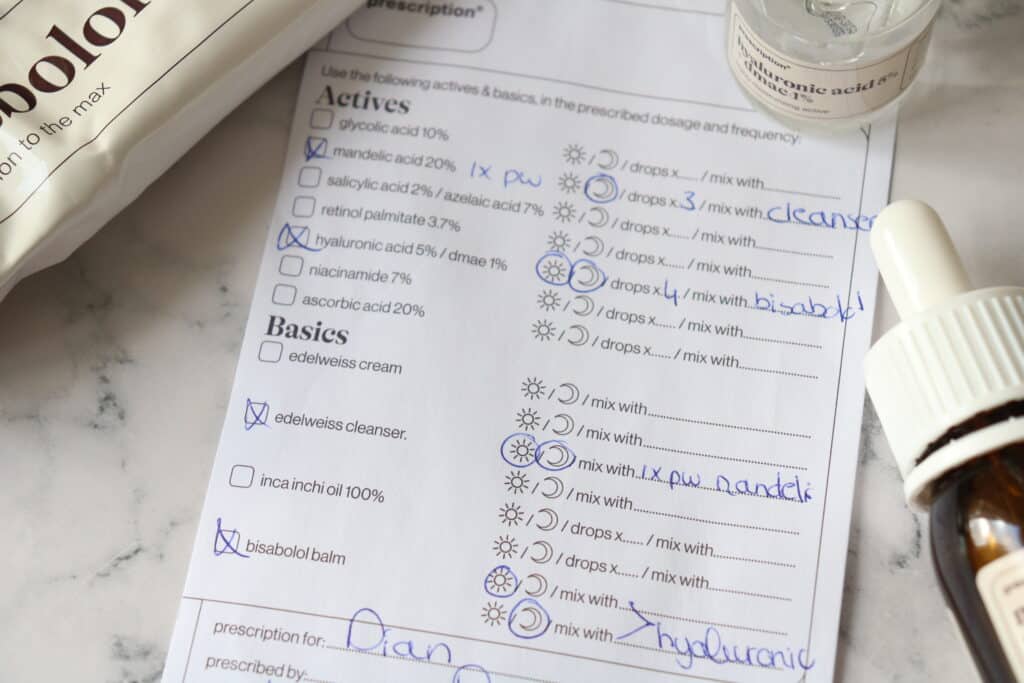 prescription®
Use the following actives & basics, in the prescribed dosage and frequency:
Actives
glycolic acid 10%
/ drops x...... / mix with
mandelic acid 20% 1x pw
/ drops x 3 / mix with cleanser
salicylic acid 2% / azelaic acid 7%
/ drops x...... / mix with
retinol palmitate 3.7%
/ drops x...... / mix with
hyaluronic acid 5% / dmae 1%
/ drops x 4 / mix with bisabolol
niacinamide 7%
/ drops x...... / mix with
ascorbic acid 20%
/ drops x...... / mix with
Basics
edelweiss cream
/ mix with
/ mix with
edelweiss cleanser.
/ mix with 1x pw mandeli
/ mix with
inca inchi oil 100%
/ drops x...... / mix with
/ drops x...... / mix with
bisabolol balm
/ mix with
/ mix with
hyaluronic
prescription for: Dian
prescribed by:
on to the max
prescription®
hyaluronic acid 5%
dmae 1%
active